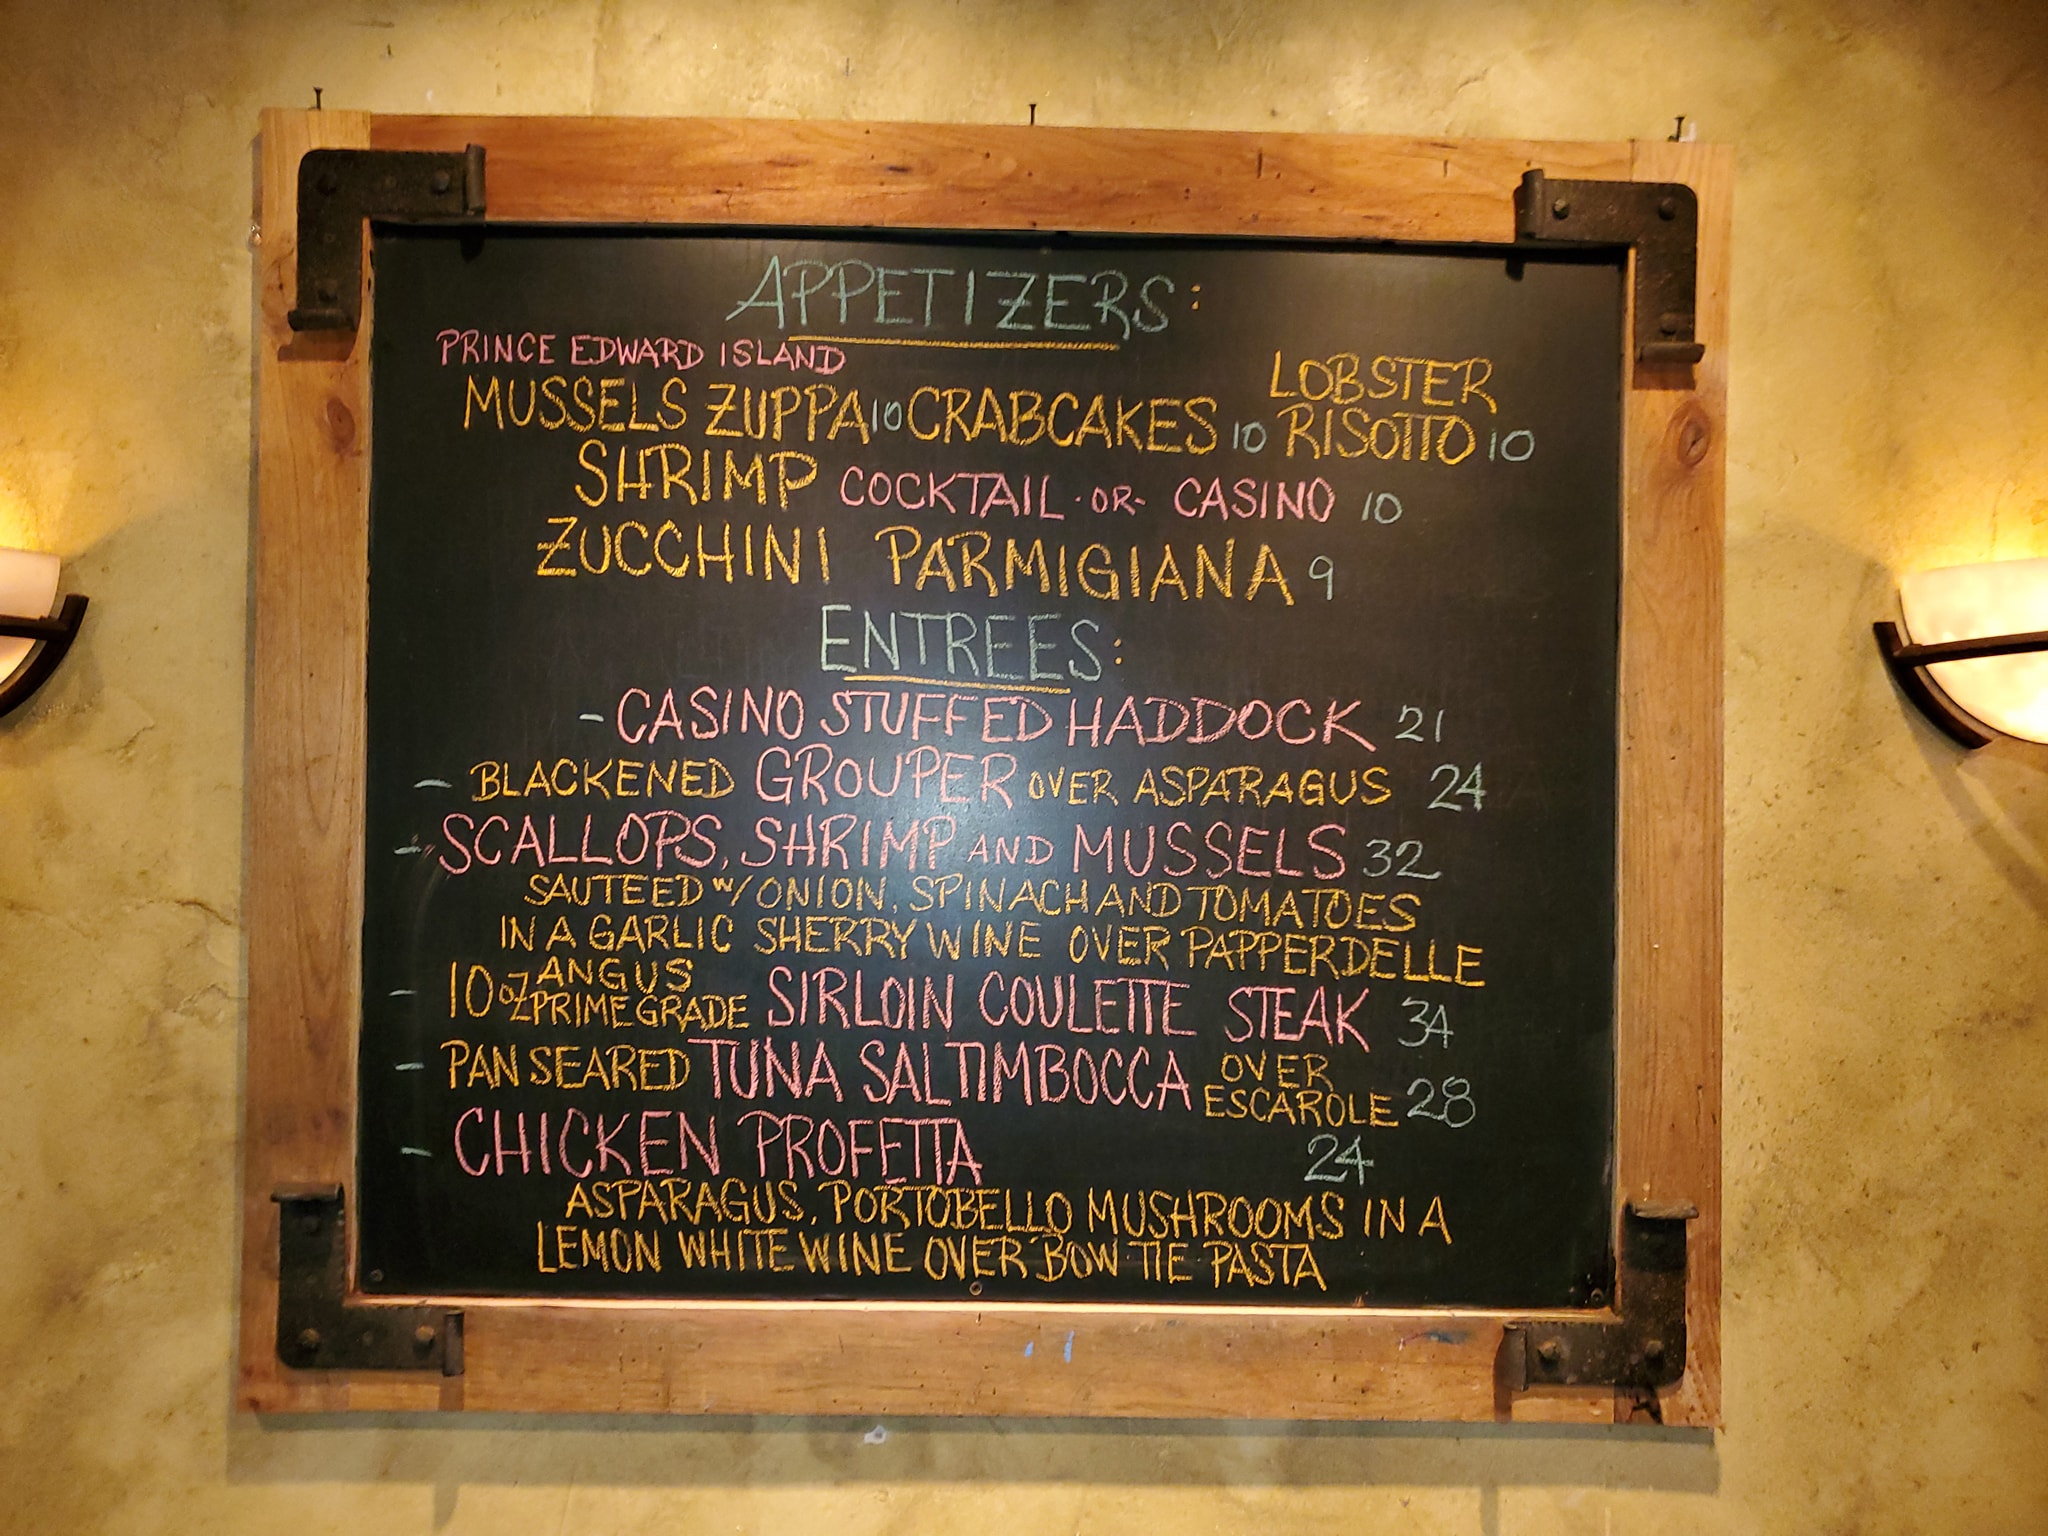 APPETIZERS:
PRINCE EDWARD ISLAND
MUSSELS ZUPPA 10 CRABCAKES 10 LOBSTER RISOTTO 10
SHRIMP COCKTAIL -OR- CASINO 10
ZUCCHINI PARMIGIANA 9
ENTREES:
- CASINO STUFFED HADDOCK 21
- BLACKENED GROUPER OVER ASPARAGUS 24
- SCALLOPS, SHRIMP AND MUSSELS 32
SAUTEED W/ ONION, SPINACH AND TOMATOES
IN A GARLIC SHERRY WINE OVER PAPPERDELLE
- 10 OZ ANGUS PRIME GRADE SIRLOIN COULETTE STEAK 34
- PAN SEARED TUNA SALTIMBOCCA OVER ESCAROLE 28
- CHICKEN PROFETTA 24
ASPARAGUS, PORTOBELLO MUSHROOMS IN A
LEMON WHITE WINE OVER BOW TIE PASTA